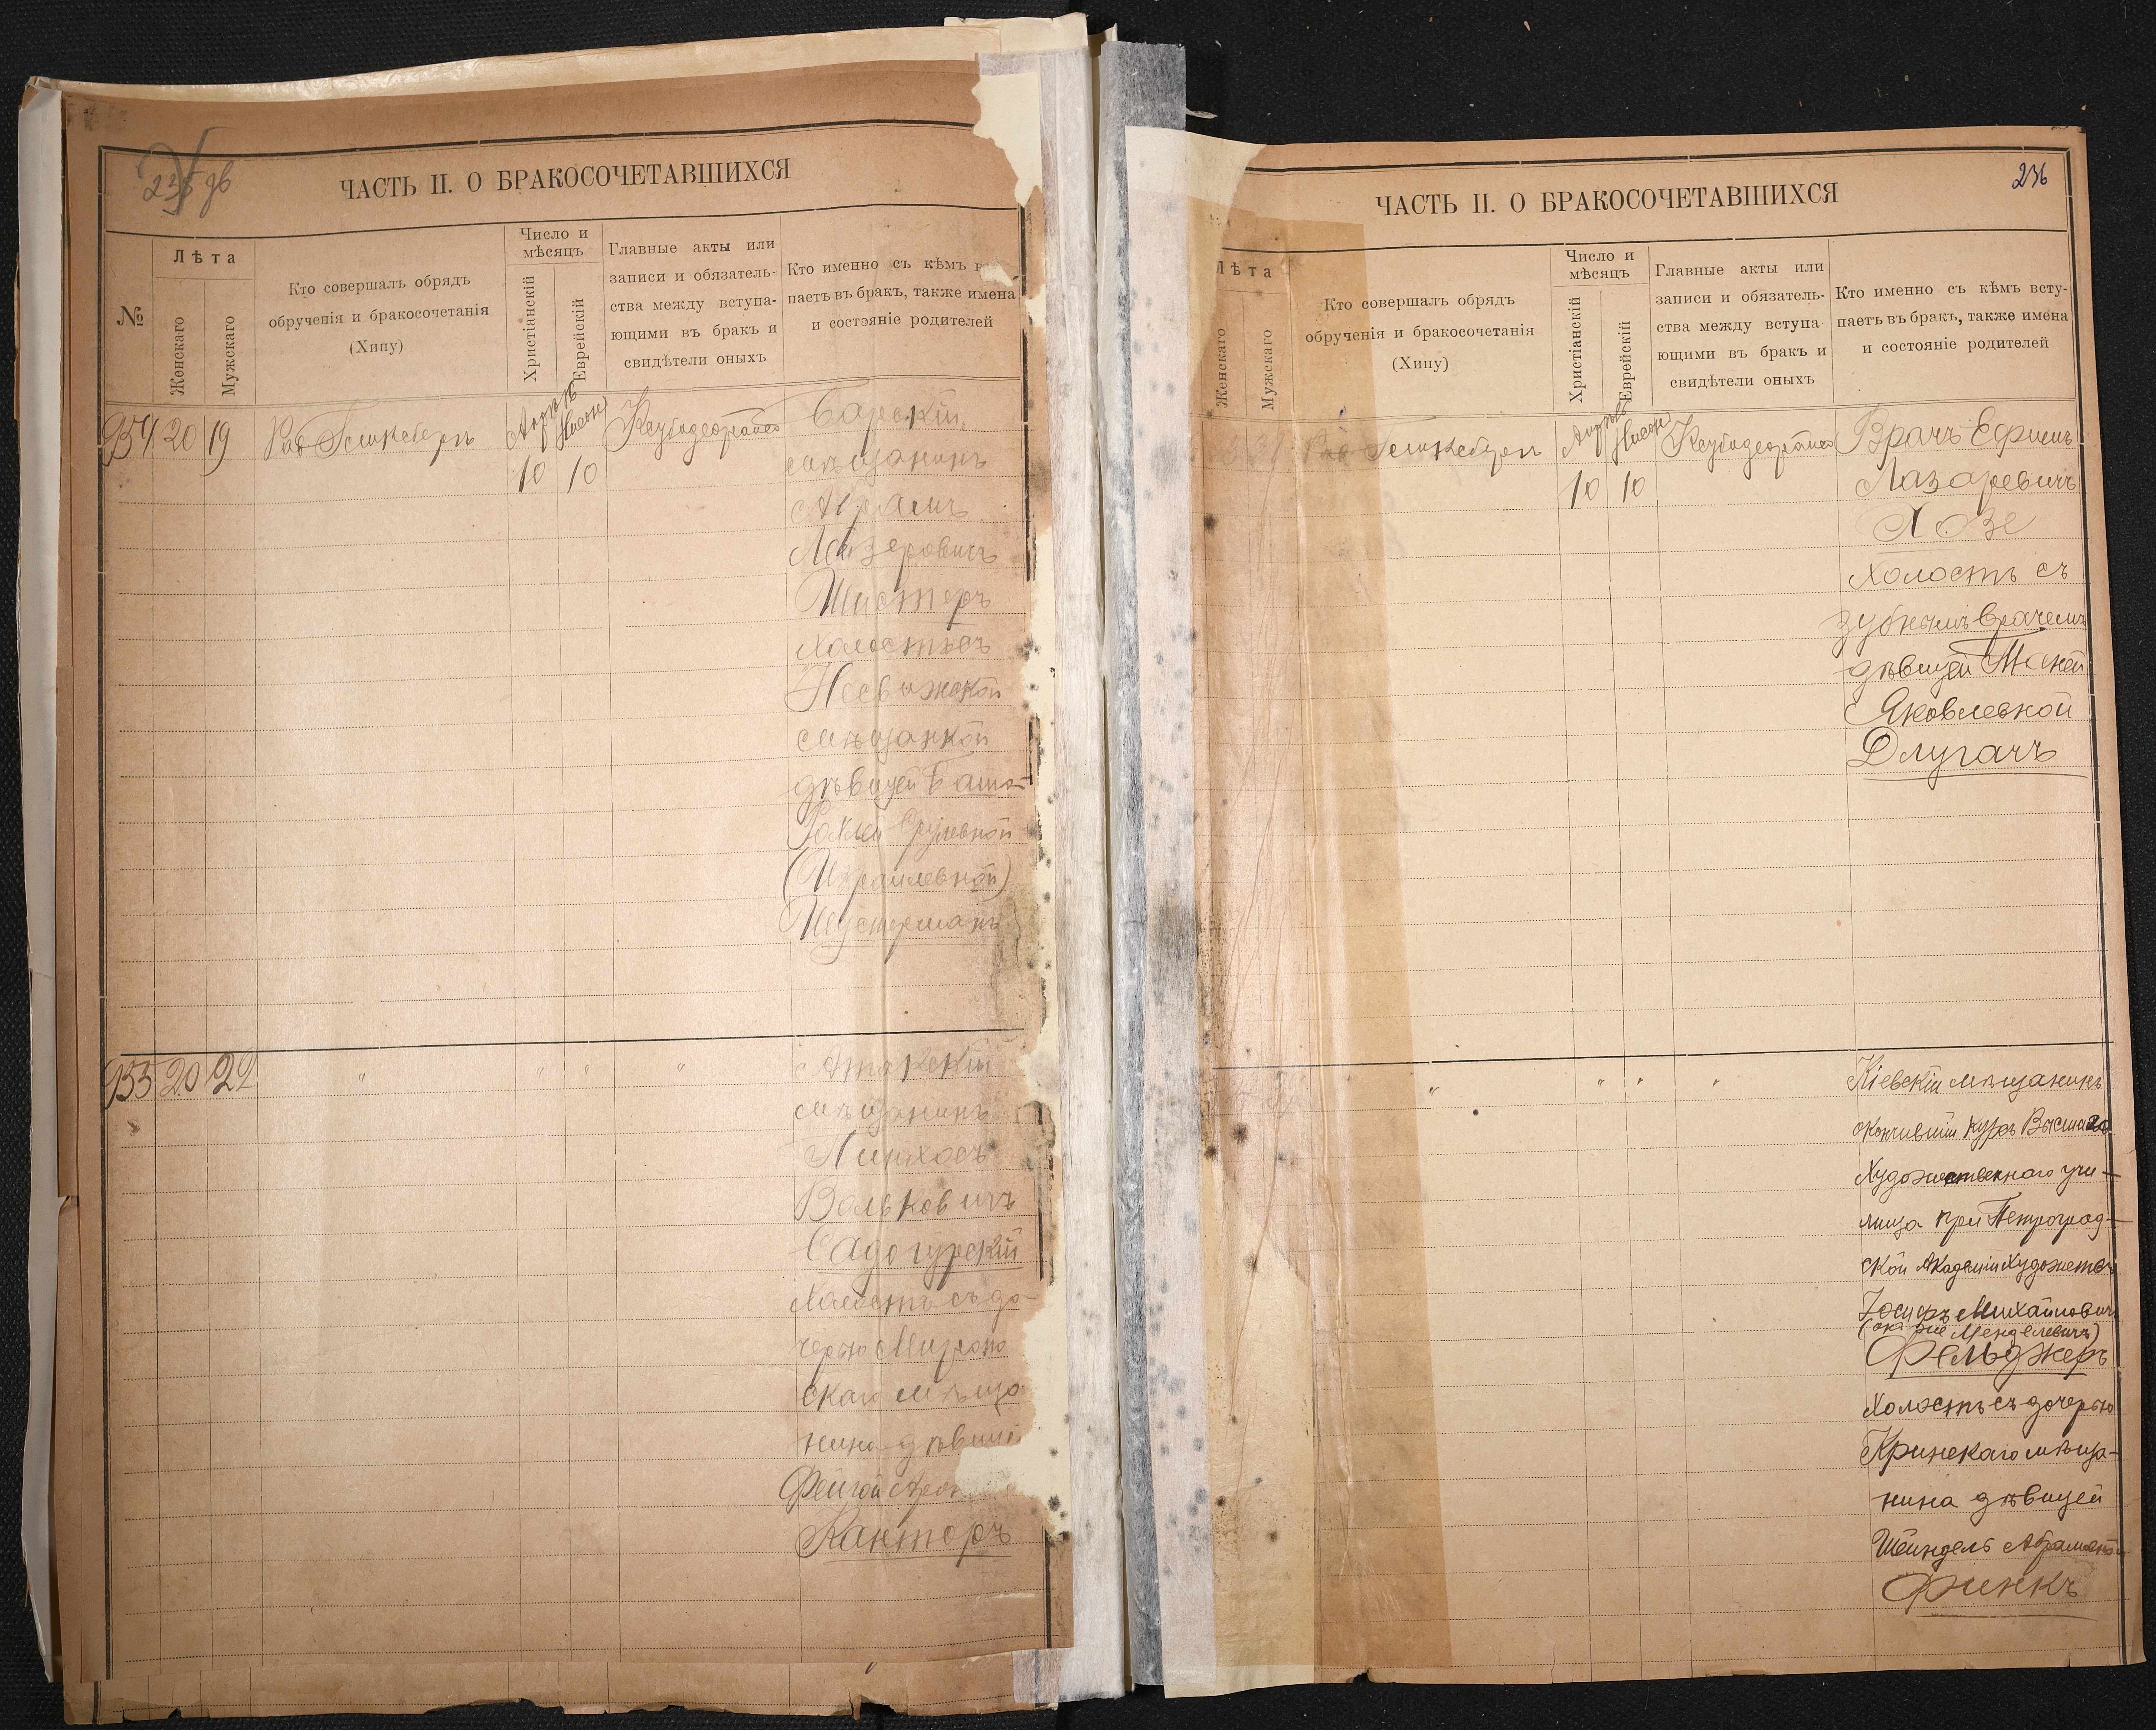 ЧАСТЬ II. О БРАКОСОЧЕТАВШИХСЯ
№
Лѣта
Женскаго
Мужскаго
Кто совершалъ обрядъ
обрученія и бракосочетанія
(Хипу)
Число и
мѣсяцъ
Христіанскій
Еврейскій
Главные акты или
записи и обязатель-
ства между вступа-
ющими въ бракъ и
свидѣтели оныхъ
Кто именно съ кѣмъ
паетъ въ бракъ, также имена
и состояніе родителей
20 19 Раб
10 10
мѣщанинъ
Абрамъ
Лейзеровичъ
Шистеръ
холостъ съ
Несвижской
мѣщанкой
дѣвицей
(Израилевной)
20 22 " " " "
мѣщанинъ
Пинхосъ
Вольковичъ
Садогурскій
Холостъ съ до-
черью
скаго мѣща
нина дѣвицей
Фейгой
Канторъ
ЧАСТЬ II. О БРАКОСОЧЕТАВШИХСЯ
236
Лѣта
Женскаго
Мужскаго
Кто совершалъ обрядъ
обрученія и бракосочетанія
(Хипу)
Число и
мѣсяцъ
Христіанскій
Еврейскій
Главные акты или
записи и обязатель-
ства между вступа
ющими въ бракъ и
свидѣтели оныхъ
Кто именно съ кѣмъ всту-
паетъ въ бракъ, также имена
и состояніе родителей
Врачъ Ефимъ
10 10 Лазаревичъ
Холостъ съ
зубнымъ врачемъ
дѣвицей
Яковлевной
Длугачъ
" " " " Кіевскій мѣщанинъ
окончившій курсъ Высшаго
Художественнаго учи-
лища при Петроград-
ской Академіи Художествъ
Іосифъ Михайловичъ
(онъ же Менделевичъ)
Фельджеръ
Холостъ съ дочерью
Кринскаго мѣща-
нина дѣвицей
Шейндель Абрамовной
Финкъ